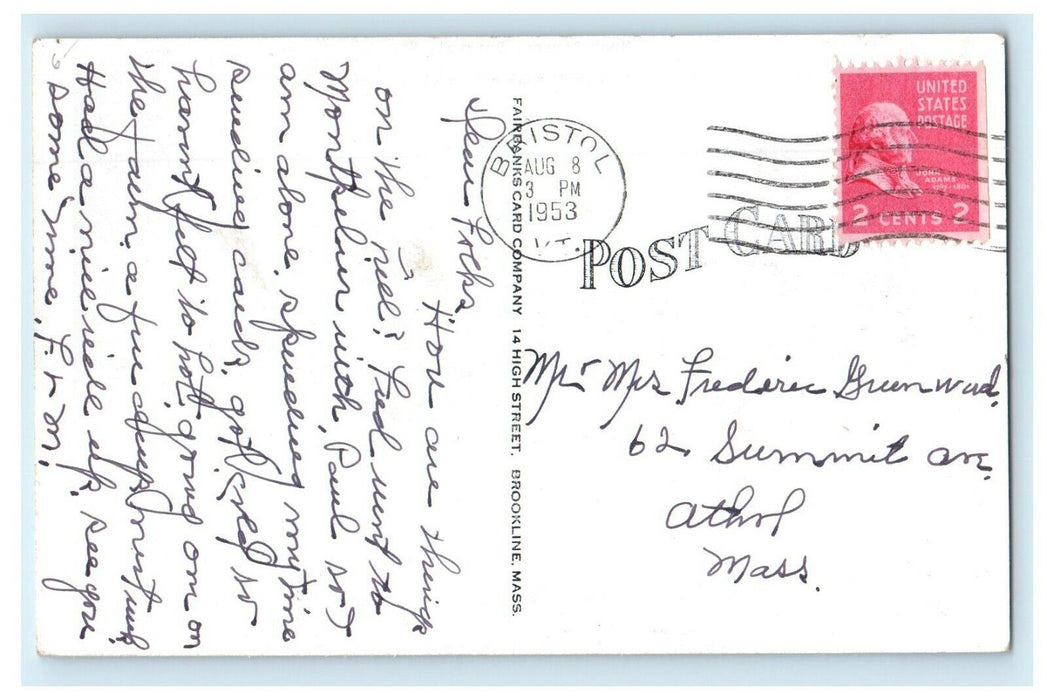 Dear Folks,
How are things
on the hill? Fred went to
Montpelier with Paul so I
am alone, spending my time
sending cards, got so
haven't felt to hot, going on
the farm a few days next week
Had a nice ride up, see you
some time, F + M.
FAIRBANKS CARD COMPANY 14 HIGH STREET, BROOKLINE, MASS.
BRISTOL
AUG 8
3 PM
1953
VT.
POST CARD
UNITED
STATES
POSTAGE
JOHN
ADAMS
1797-1801
2 CENTS 2
Mr Mrs Frederic Greenwood,
62 Summit Ave,
Athol
Mass.